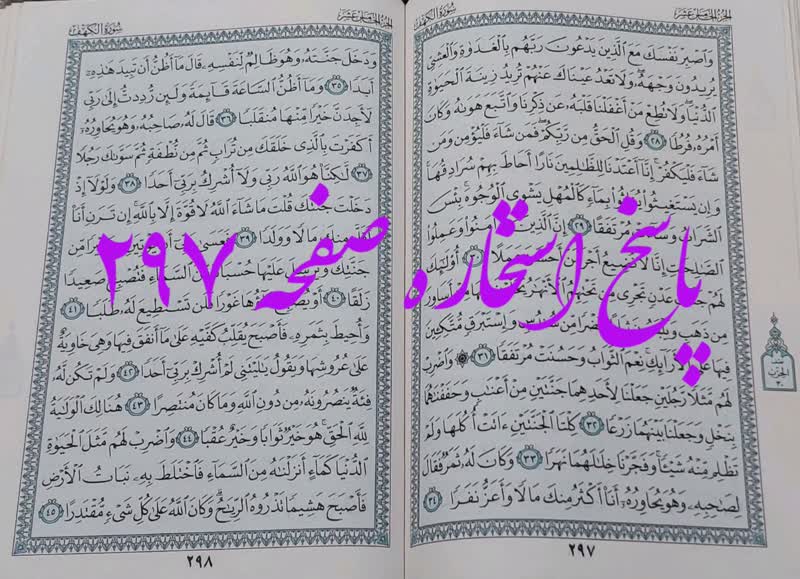 الجزء الخامس عشر
سورة الكهف
وَاصْبِرْ نَفْسَكَ مَعَ الَّذِينَ يَدْعُونَ رَبَّهُم بِالْغَدَاوةِ وَالْعَشِىِّ
يُرِيدُونَ وَجْهَهُ وَلَا تَعْدُ عَيْنَاكَ عَنْهُمْ تُرِيدُ زِينَةَ الْحَيَوٰةِ
الدُّنْيَا وَلَا تُطِعْ مَنْ أَغْفَلْنَا قَلْبَهُ عَن ذِكْرِنَا وَاتَّبَعَ هَوَىٰهُ وَكَانَ
أَمْرُهُ فُرُطًا ٢٨ وَقُلِ الْحَقُّ مِن رَّبِّكُمْ فَمَن شَاءَ فَلْيُؤْمِن وَمَن
شَاءَ فَلْيَكْفُرْ إِنَّا أَعْتَدْنَا لِلظَّٰلِمِينَ نَارًا أَحَاطَ بِهِمْ سُرَادِقُهَا
وَإِن يَسْتَغِيثُوا يُغَاثُوا بِمَاءٍ كَالْمُهْلِ يَشْوِى الْوُجُوهَ بِئْسَ
الشَّرَابُ وَسَاءَتْ مُرْتَفَقًا ٢٩ إِنَّ الَّذِينَ ءَامَنُوا وَعَمِلُوا
الصَّٰلِحَٰتِ إِنَّا لَا نُضِيعُ أَجْرَ مَنْ أَحْسَنَ عَمَلًا ٣٠ أُولَٰئِكَ
لَهُمْ جَنَّٰتُ عَدْنٍ تَجْرِى مِن تَحْتِهِمُ الْأَنْهَٰرُ يُحَلَّوْنَ فِيهَا مِنْ أَسَاوِرَ
مِن ذَهَبٍ وَيَلْبَسُونَ ثِيَابًا خُضْرًا مِّن سُندُسٍ وَإِسْتَبْرَقٍ مُّتَّكِئِينَ
فِيهَا عَلَى الْأَرَائِكِ نِعْمَ الثَّوَابُ وَحَسُنَتْ مُرْتَفَقًا ٣١ وَاضْرِبْ
لَهُم مَّثَلًا رَّجُلَيْنِ جَعَلْنَا لِأَحَدِهِمَا جَنَّتَيْنِ مِنْ أَعْنَٰبٍ وَحَفَفْنَٰهُمَا
بِنَخْلٍ وَجَعَلْنَا بَيْنَهُمَا زَرْعًا ٣٢ كِلْتَا الْجَنَّتَيْنِ ءَاتَتْ أُكُلَهَا وَلَمْ
تَظْلِم مِّنْهُ شَيْئًا وَفَجَّرْنَا خِلَٰلَهُمَا نَهَرًا ٣٣ وَكَانَ لَهُ ثَمَرٌ فَقَالَ
لِصَٰحِبِهِ وَهُوَ يُحَاوِرُهُ أَنَا أَكْثَرُ مِنكَ مَالًا وَأَعَزُّ نَفَرًا ٣٤
٢٩٧
الجزء الخامس عشر
سورة الكهف
وَدَخَلَ جَنَّتَهُ وَهُوَ ظَالِمٌ لِّنَفْسِهِ قَالَ مَا أَظُنُّ أَن تَبِيدَ هَٰذِهِ
أَبَدًا ٣٥ وَمَا أَظُنُّ السَّاعَةَ قَائِمَةً وَلَئِن رُّدِدتُّ إِلَىٰ رَبِّى
لَأَجِدَنَّ خَيْرًا مِّنْهَا مُنقَلَبًا ٣٦ قَالَ لَهُ صَاحِبُهُ وَهُوَ يُحَاوِرُهُ
أَكَفَرْتَ بِالَّذِى خَلَقَكَ مِن تُرَابٍ ثُمَّ مِن نُّطْفَةٍ ثُمَّ سَوَّىٰكَ رَجُلًا
٣٧ لَّٰكِنَّا هُوَ اللَّهُ رَبِّى وَلَا أُشْرِكُ بِرَبِّى أَحَدًا ٣٨ وَلَوْلَا إِذْ
دَخَلْتَ جَنَّتَكَ قُلْتَ مَا شَاءَ اللَّهُ لَا قُوَّةَ إِلَّا بِاللَّهِ إِن تَرَنِ أَنَا
أَقَلَّ مِنكَ مَالًا وَوَلَدًا ٣٩ فَعَسَىٰ رَبِّى أَن يُؤْتِيَنِ خَيْرًا مِّن
جَنَّتِكَ وَيُرْسِلَ عَلَيْهَا حُسْبَانًا مِّنَ السَّمَاءِ فَتُصْبِحَ صَعِيدًا
زَلَقًا ٤٠ أَوْ يُصْبِحَ مَاؤُهَا غَوْرًا فَلَن تَسْتَطِيعَ لَهُ طَلَبًا ٤١
وَأُحِيطَ بِثَمَرِهِ فَأَصْبَحَ يُقَلِّبُ كَفَّيْهِ عَلَىٰ مَا أَنفَقَ فِيهَا وَهِىَ خَاوِيَةٌ
عَلَىٰ عُرُوشِهَا وَيَقُولُ يَٰلَيْتَنِى لَمْ أُشْرِكْ بِرَبِّى أَحَدًا ٤٢ وَلَمْ تَكُن لَّهُ
فِئَةٌ يَنصُرُونَهُ مِن دُونِ اللَّهِ وَمَا كَانَ مُنتَصِرًا ٤٣ هُنَالِكَ الْوَلَٰيَةُ
لِلَّهِ الْحَقِّ هُوَ خَيْرٌ ثَوَابًا وَخَيْرٌ عُقْبًا ٤٤ وَاضْرِبْ لَهُم مَّثَلَ الْحَيَوٰةِ
الدُّنْيَا كَمَاءٍ أَنزَلْنَٰهُ مِنَ السَّمَاءِ فَاخْتَلَطَ بِهِ نَبَاتُ الْأَرْضِ
فَأَصْبَحَ هَشِيمًا تَذْرُوهُ الرِّيَٰحُ وَكَانَ اللَّهُ عَلَىٰ كُلِّ شَىْءٍ مُّقْتَدِرًا ٤٥
٢٩٨
پاسخ استخاره صفحه ۲۹۷